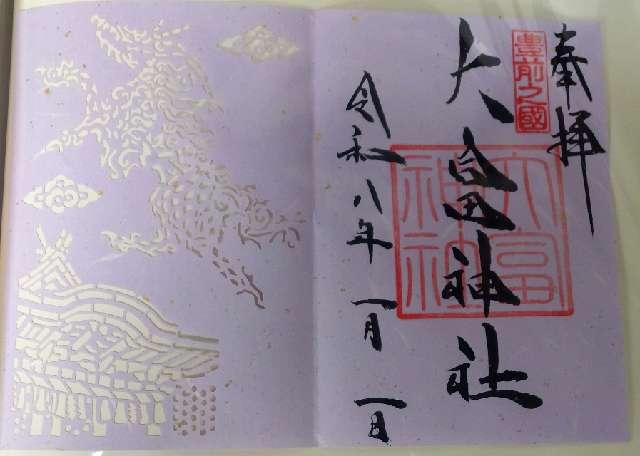 奉拝
豊前之國
大富神社
大富神社
令和八年一月一日